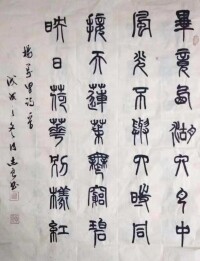 畢竟西湖六月中
風光不與四時同
接天蓮葉無窮碧
映日荷華別樣紅
楊萬里詩一首
戊戌之冬